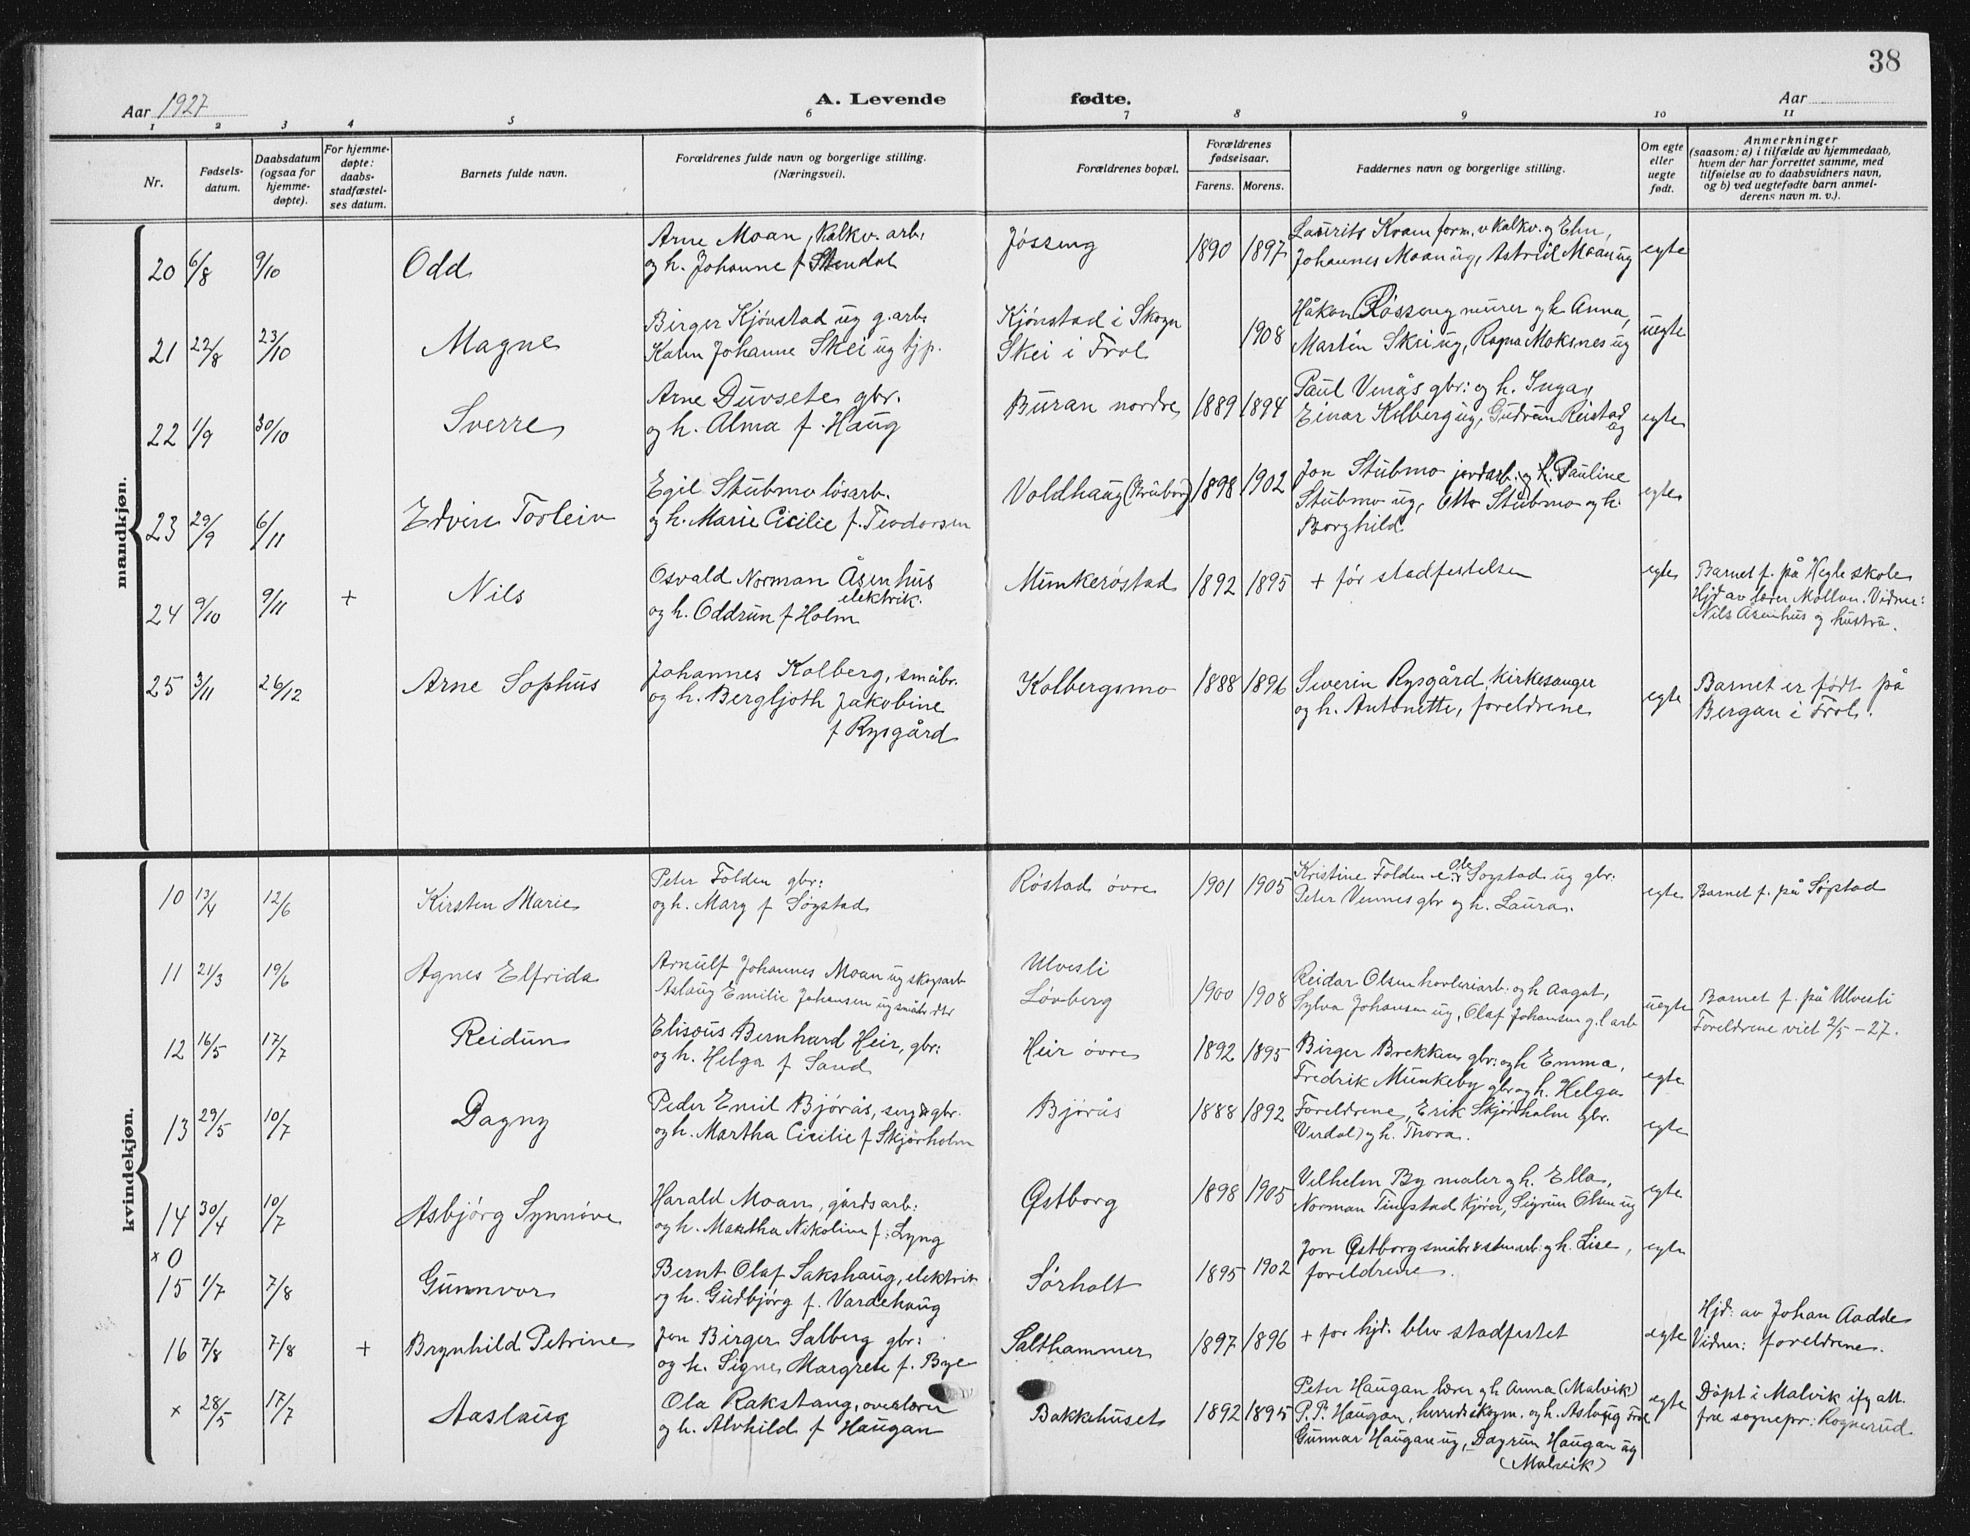 38
Aar 1927
A. Levende fødte.
Aar
1 2 3 4 5 6 7 8 9 10 11
Nr.
Fødsels-
datum.
Daabsdatum
(ogsaa for
hjemme-
døpte).
For hjemme-
døpte:
daabs-
stadfæstel-
ses datum.
Barnets fulde navn.
Forældrenes fulde navn og borgerlige stilling.
(Næringsvei).
Forældrenes bopæl.
Forældrenes
fødselsaar.
Farens. Morens.
Faddernes navn og borgerlige stilling.
Om egte
eller
uegte
født.
Anmerkninger
(saasom: a) i tilfælde av hjemmedaab,
hvem der har forrettet samme, med
tilføielse av to daabsvidners navn,
og b) ved uegtefødte barn anmel-
derens navn m. v.).
mandkjøn.
20 6/8 9/10 Odd
Arne Moan, Kalkv. arb.
og h. Johanne f Stendal
Jøsseng
1890 1897
Laurits Kvam form. v Kalkv. og Elin,
Johannes Moan ug, Astrid Moan ug
egte
21 22/8 23/10 Magne
Birger Kjønstad ug g.arb.
Karen Johanne Skei ug tjp.
Kjønstad i Skogn
Skei i Frol
1908
Håkon Røsseng murer og h. Anna,
Martin Skei ug, Ragna Moksnes ug
uegte
22 1/9 30/10 Sverre
Arne Duvsete gbr.
og h. Alma f. Haug
Buran nordre
1889 1894
Paul Venås gbr: og h. Inga,
Einar Kolberg ug, Gudrun Reistad
ug
egte
23 29/9 6/11 Edvin Torleiv
Egil Stubmo løsarb.
og h. Marie Cicilie f. Teodorsen
Voldhaug
1898 1902
Jon Stubmo jordarb. og h. Pauline
Stubmo ug, Otto Stubmo og h.
Borghild
egte
24 9/10 9/11 + Nils
Osvald Norman Åsenhus
elektrik.
og h. Oddrun f Holm
Munkerøstad
1892 1895
+ før stadfestelsen
egte
Barnet f. på Hegle skole
Hjd av lærer Mollan. Vidner:
Nils Åsenhus og hustru.
25 3/11 26/12 Arne Sophus
Johannes Kolberg, småbr.
og h. Bergljoth Jakobine
f Rysgård
Kolbergsmo
1888 1896
Severin Rysgård, kirkesanger
og h. Antonette, foreldrene
egte
Barnet er født på
Bergan i Frol.
kvindekjøn.
10 13/4 12/6 Kirsten Marie
Peter Folden gbr:
og h. Mary f Søgstad
Røstad øvre
1901 1905
Kristine Folden Ole Sogstad ug gbr:
Peter Vennes gbr og h. Laura.
egte
Barnet f. på
11 21/3 19/6 Agnes Elfrida
Arnulf Johannes Moan ug skogsarb
Aslaug Emilie Johansen ug småbr. dtr
Ulvesli
Løvberg
1900 1908
Reidar Olsen høvleriarb: og h Aagot,
Sylva Johansen ug, Olaf Johansen g. l arb
uegte
Barnet f. på Ulvesli
Foreldrene viet 2/5 - 27.
12 16/5 17/7 Reidun
Elisæus Bernhard Heir, gbr:
og h. Helga f Sand
Heir øvre
1892 1895
Birger Brekken gbr: og h Emma,
Fredrik Munkeby gbr og h. Helga
egte
13 29/5 10/7 Dagny
Peder Emil Bjørås, gbr.
og h. Martha Cicilie f Skjørholm
Bjørås
1888 1892
Foreldrene, Erik Skjørholm gbr.
Verdal) og h. Thora.
egte
14 30/4 10/7 Asbjørg Synnøve
Harald Moan, gårdsarb:
og h. Martha Nikoline f: Lyng
Østborg
1898 1905
Vilhelm By maler og h. Ella,
Norman Tingstad kjører, Sigrun Olsen ug
egte
x 0
15 1/7 7/8 Gunnvor
Bernt Olaf Sakshaug, elektrik
og h. Gudbjørg f. Vardehaug
Sørholt
1895 1902
Jon Østborg småbr & stenarb: og h. Lise,
foreldrene.
egte
16 7/8 7/8 + Brynhild Petrine
Jon Birger Salberg gbr:
og h. Signe Margrete f. Bye
Salthammer
1897 1896
+ for hjd. blev stadfestet
egte
Hjd: av Johan Aadde
Vidner: foreldrene.
x 28/5 17/7 Aaslaug
Ola Rakstang, overlærer
og h. Alvhild f Haugan
Bakkehuset
1892 1895
Peter Haugan lærer og h Anna (Malvik)
P. P. Haugan, herredskogm. og h. Aslaug Frol
Gunnar Haugan ug, Dagrun Haugan ug
(Malvik)
egte
Døpt i Malvik ifg att.
fra sognepr: Rognerud